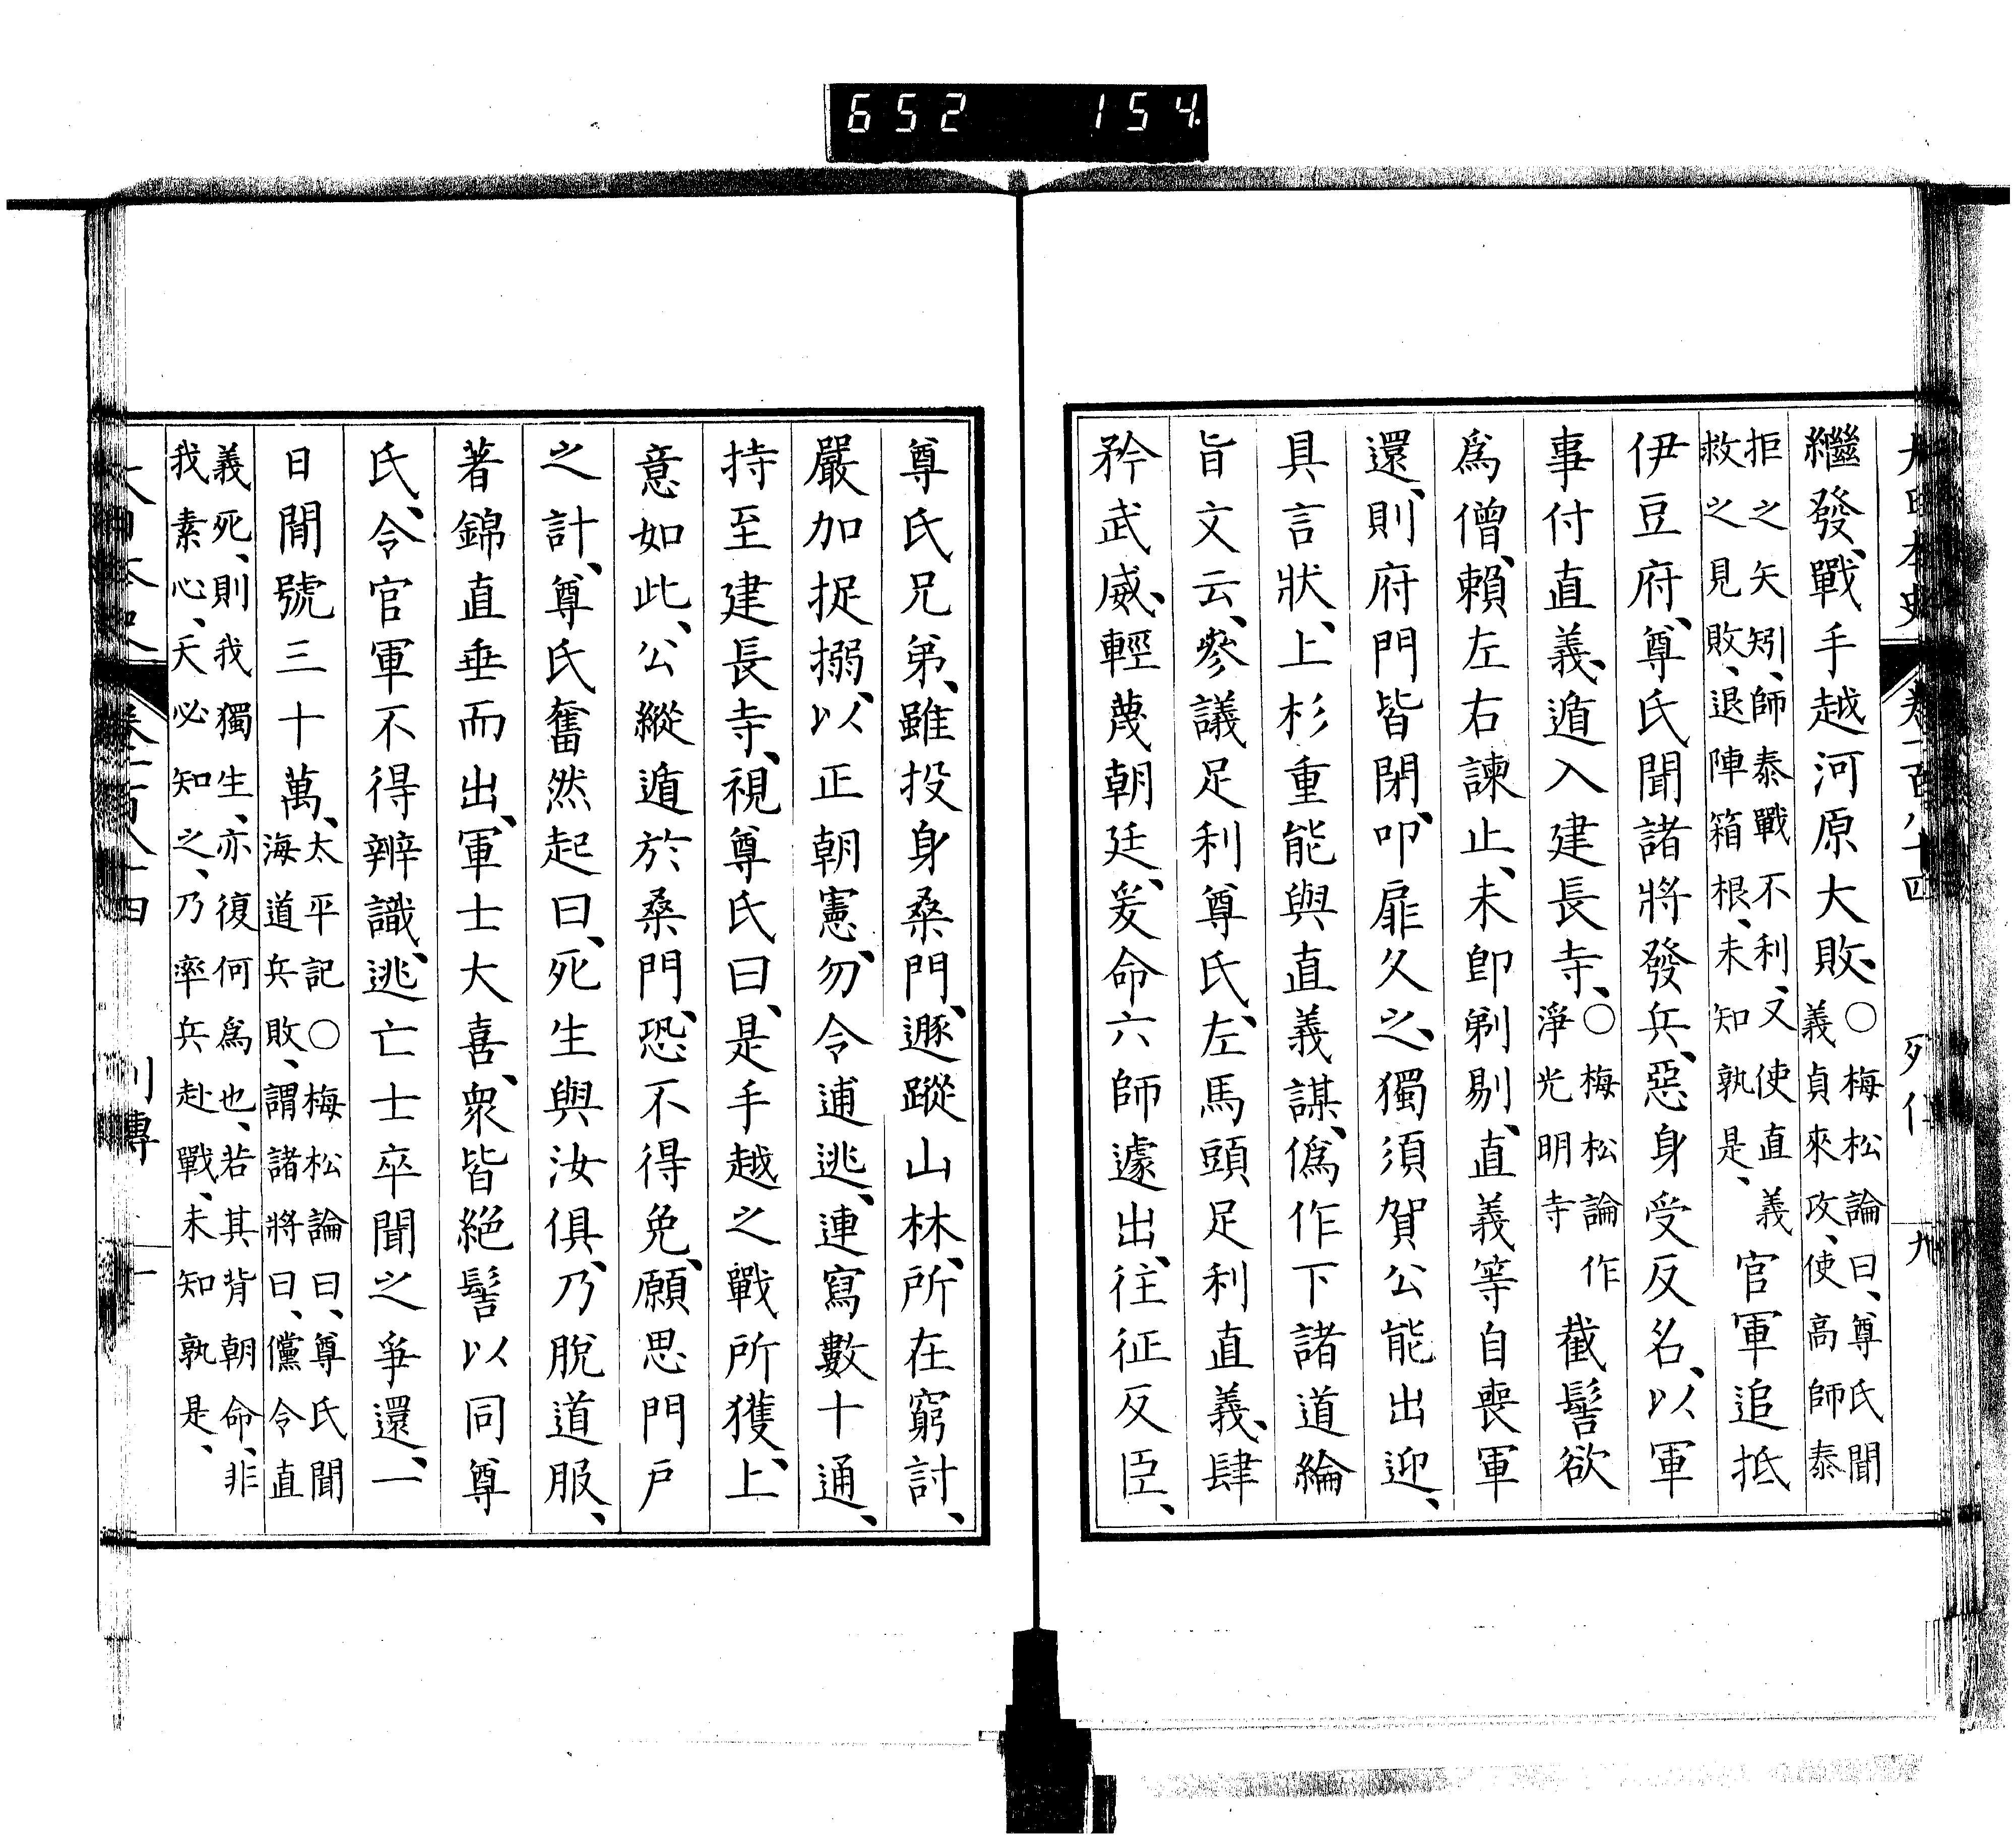 652 154
大日本史 卷一百八十四 列傳 九
繼發、戰手越河原大敗、○梅松論曰、尊氏聞
義貞來攻、使高師泰
拒之矢矧、師泰戰不利、又使直義
救之見敗、退陣箱根、未知孰是、官軍追抵
伊豆府、尊氏聞諸將發兵、惡身受反名、以軍
事付直義、遁入建長寺、○梅松論作
淨光明寺截髻欲
爲僧、賴左右諫止、未卽剃剔、直義等自喪軍
還、則府門皆閉、叩扉久之、獨須賀公能出迎、
具言狀、上杉重能與直義謀、僞作下諸道綸
旨文云、參議足利尊氏、左馬頭足利直義、肆
矜武威、輕蔑朝廷、爰命六師遽出、往征反臣、
尊氏兄弟、雖投身桑門、遯蹤山林、所在窮討、
嚴加捉搦、以正朝憲、勿令逋逃、連寫數十通、
持至建長寺、視尊氏曰、是手越之戰所獲、上
意如此、公縱遁於桑門、恐不得免、願思門戶
之計、尊氏奮然起曰、死生與汝俱、乃脫道服、
著錦直垂而出、軍士大喜、衆皆絕髻以同尊
氏、令官軍不得辨識、逃亡士卒聞之爭還、一
日間號三十萬、太平記○梅松論曰、尊氏聞
海道兵敗、謂諸將曰、儻令直
義死、則我獨生、亦復何爲也、若其背朝命、非
我素心、天必知之、乃率兵赴戰、未知孰是、
大日本史 卷一百八十四 列傳